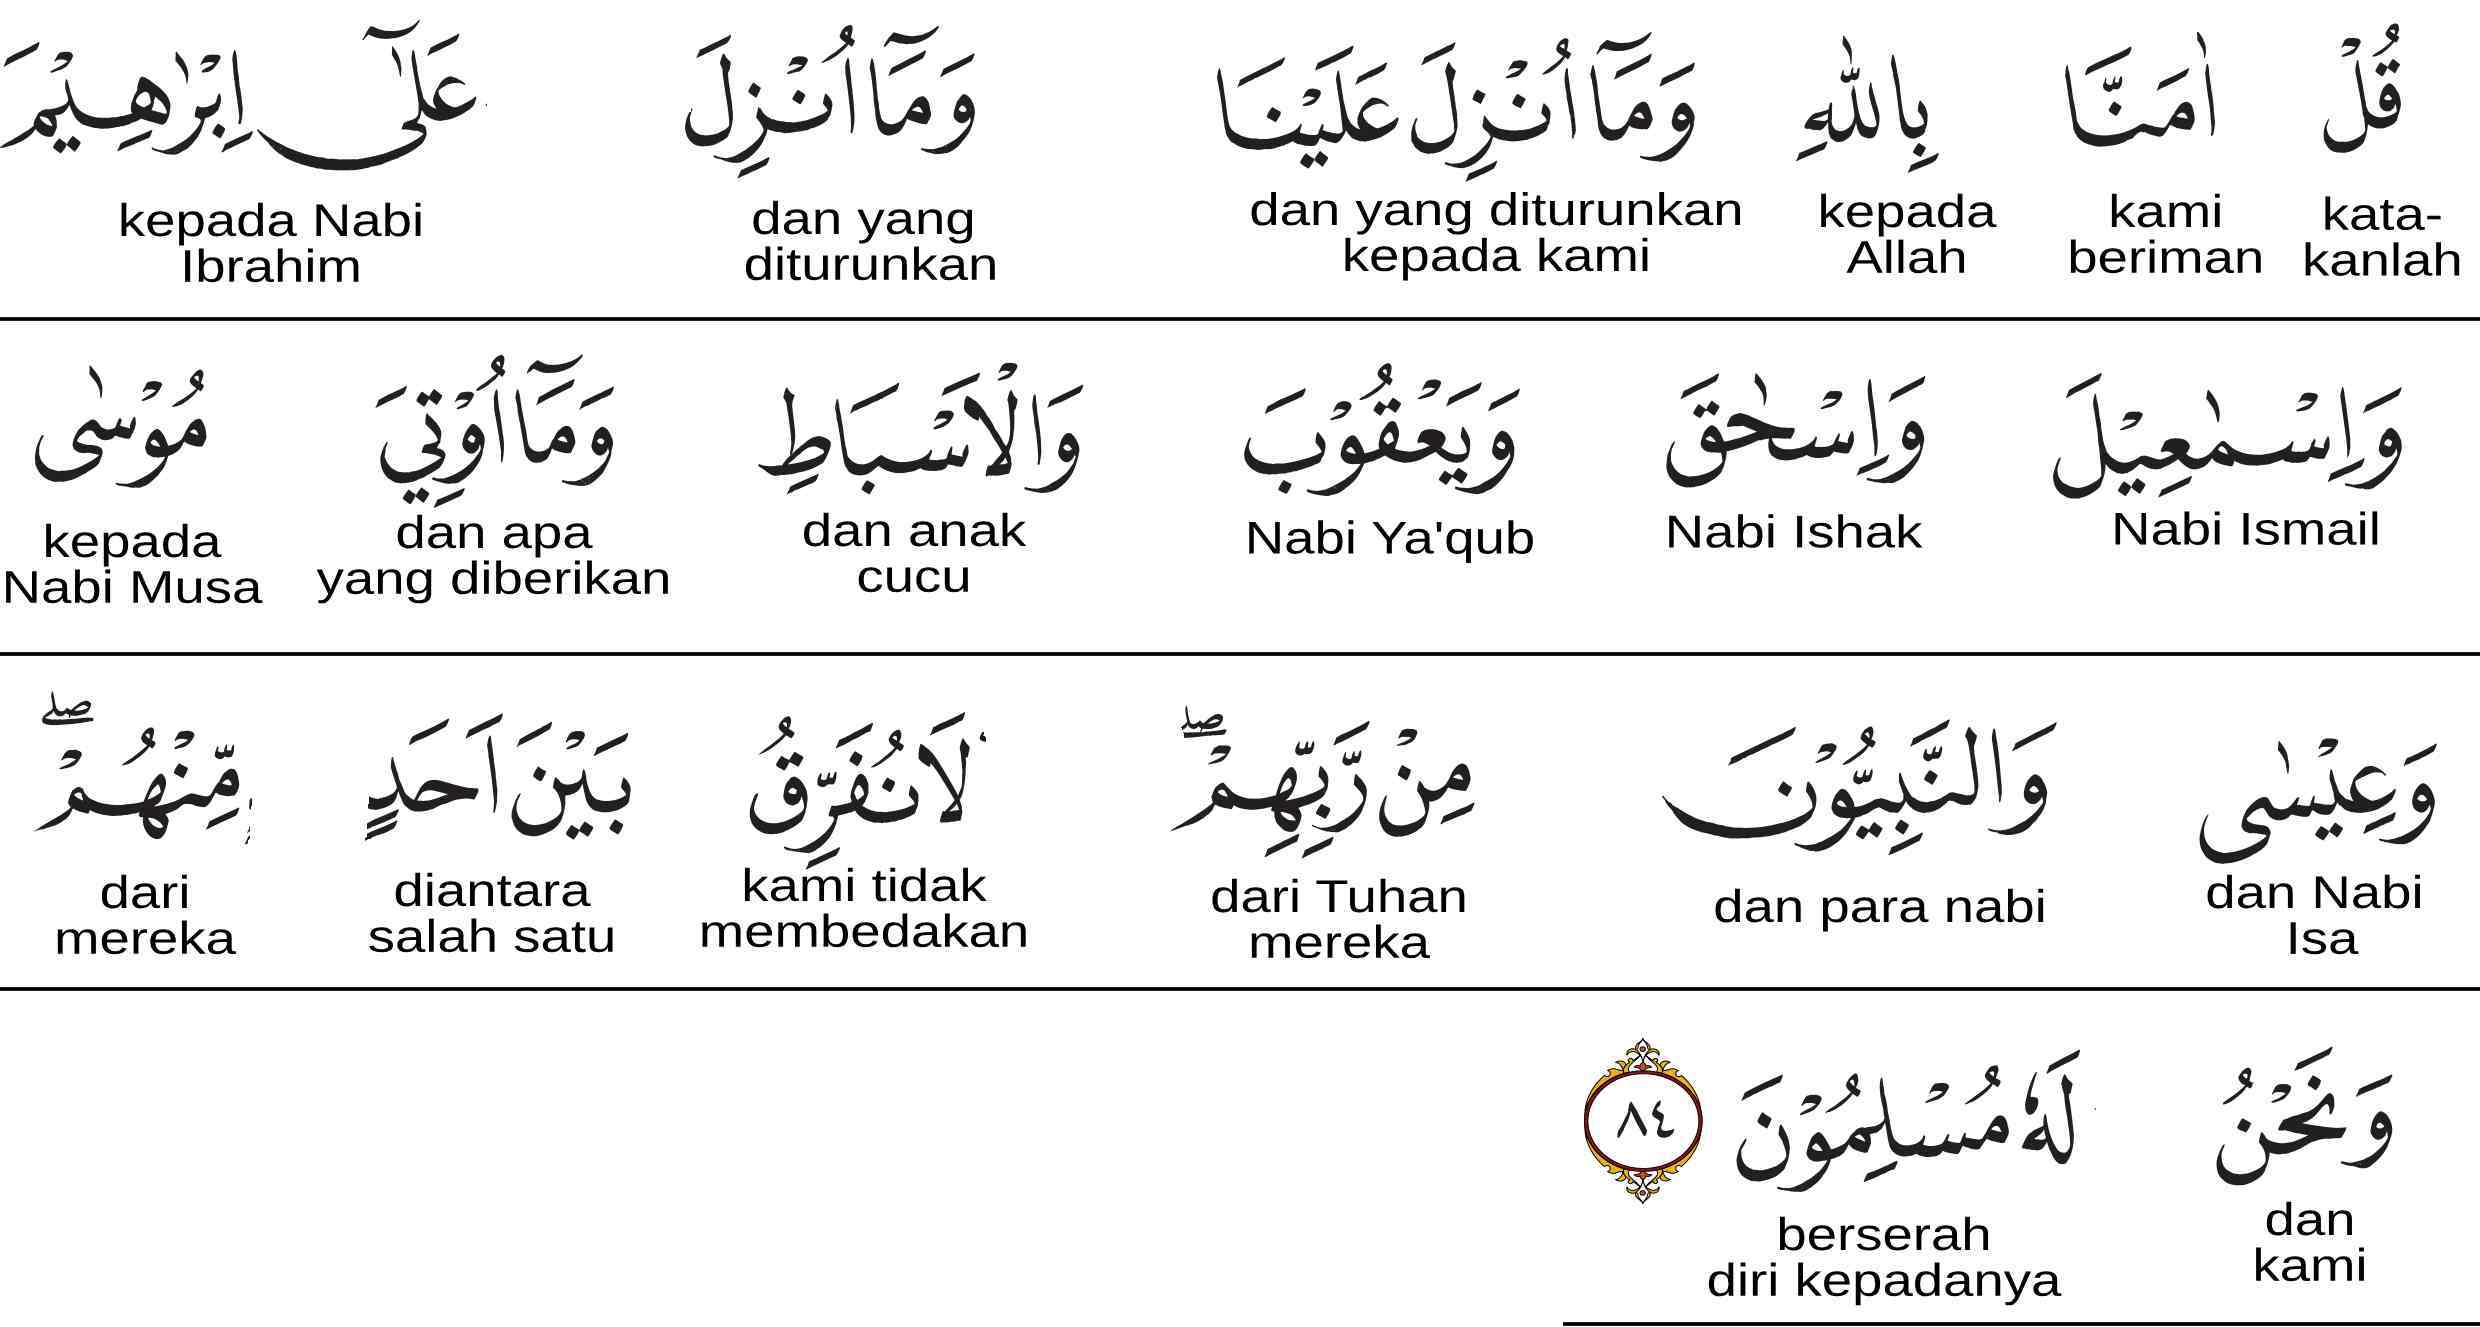 قُلْ اٰمَنَّا بِاللّٰهِ وَمَآ اُنْزِلَ عَلَيْنَا وَمَآ اُنْزِلَ عَلٰٓى اِبْرٰهِيْمَ
kata- kami kepada dan yang diturunkan dan yang kepada Nabi
kanlah beriman Allah kepada kami diturunkan Ibrahim
وَاِسْمٰعِيْلَ وَاِسْحٰقَ وَيَعْقُوْبَ وَالْاَسْبَاطِ وَمَآ اُوْتِيَ مُوْسٰى
Nabi Ismail Nabi Ishak Nabi Ya'qub dan anak dan apa kepada
cucu yang diberikan Nabi Musa
وَعِيْسٰى وَالنَّبِيُّوْنَ مِنْ رَّبِّهِمْۖ لَا نُفَرِّقُ بَيْنَ اَحَدٍ مِّنْهُمْۖ
dan Nabi dan para nabi dari Tuhan kami tidak diantara dari
Isa mereka membedakan salah satu mereka
وَنَحْنُ لَهٗ مُسْلِمُوْنَ ٨٤
dan berserah
kami diri kepadanya